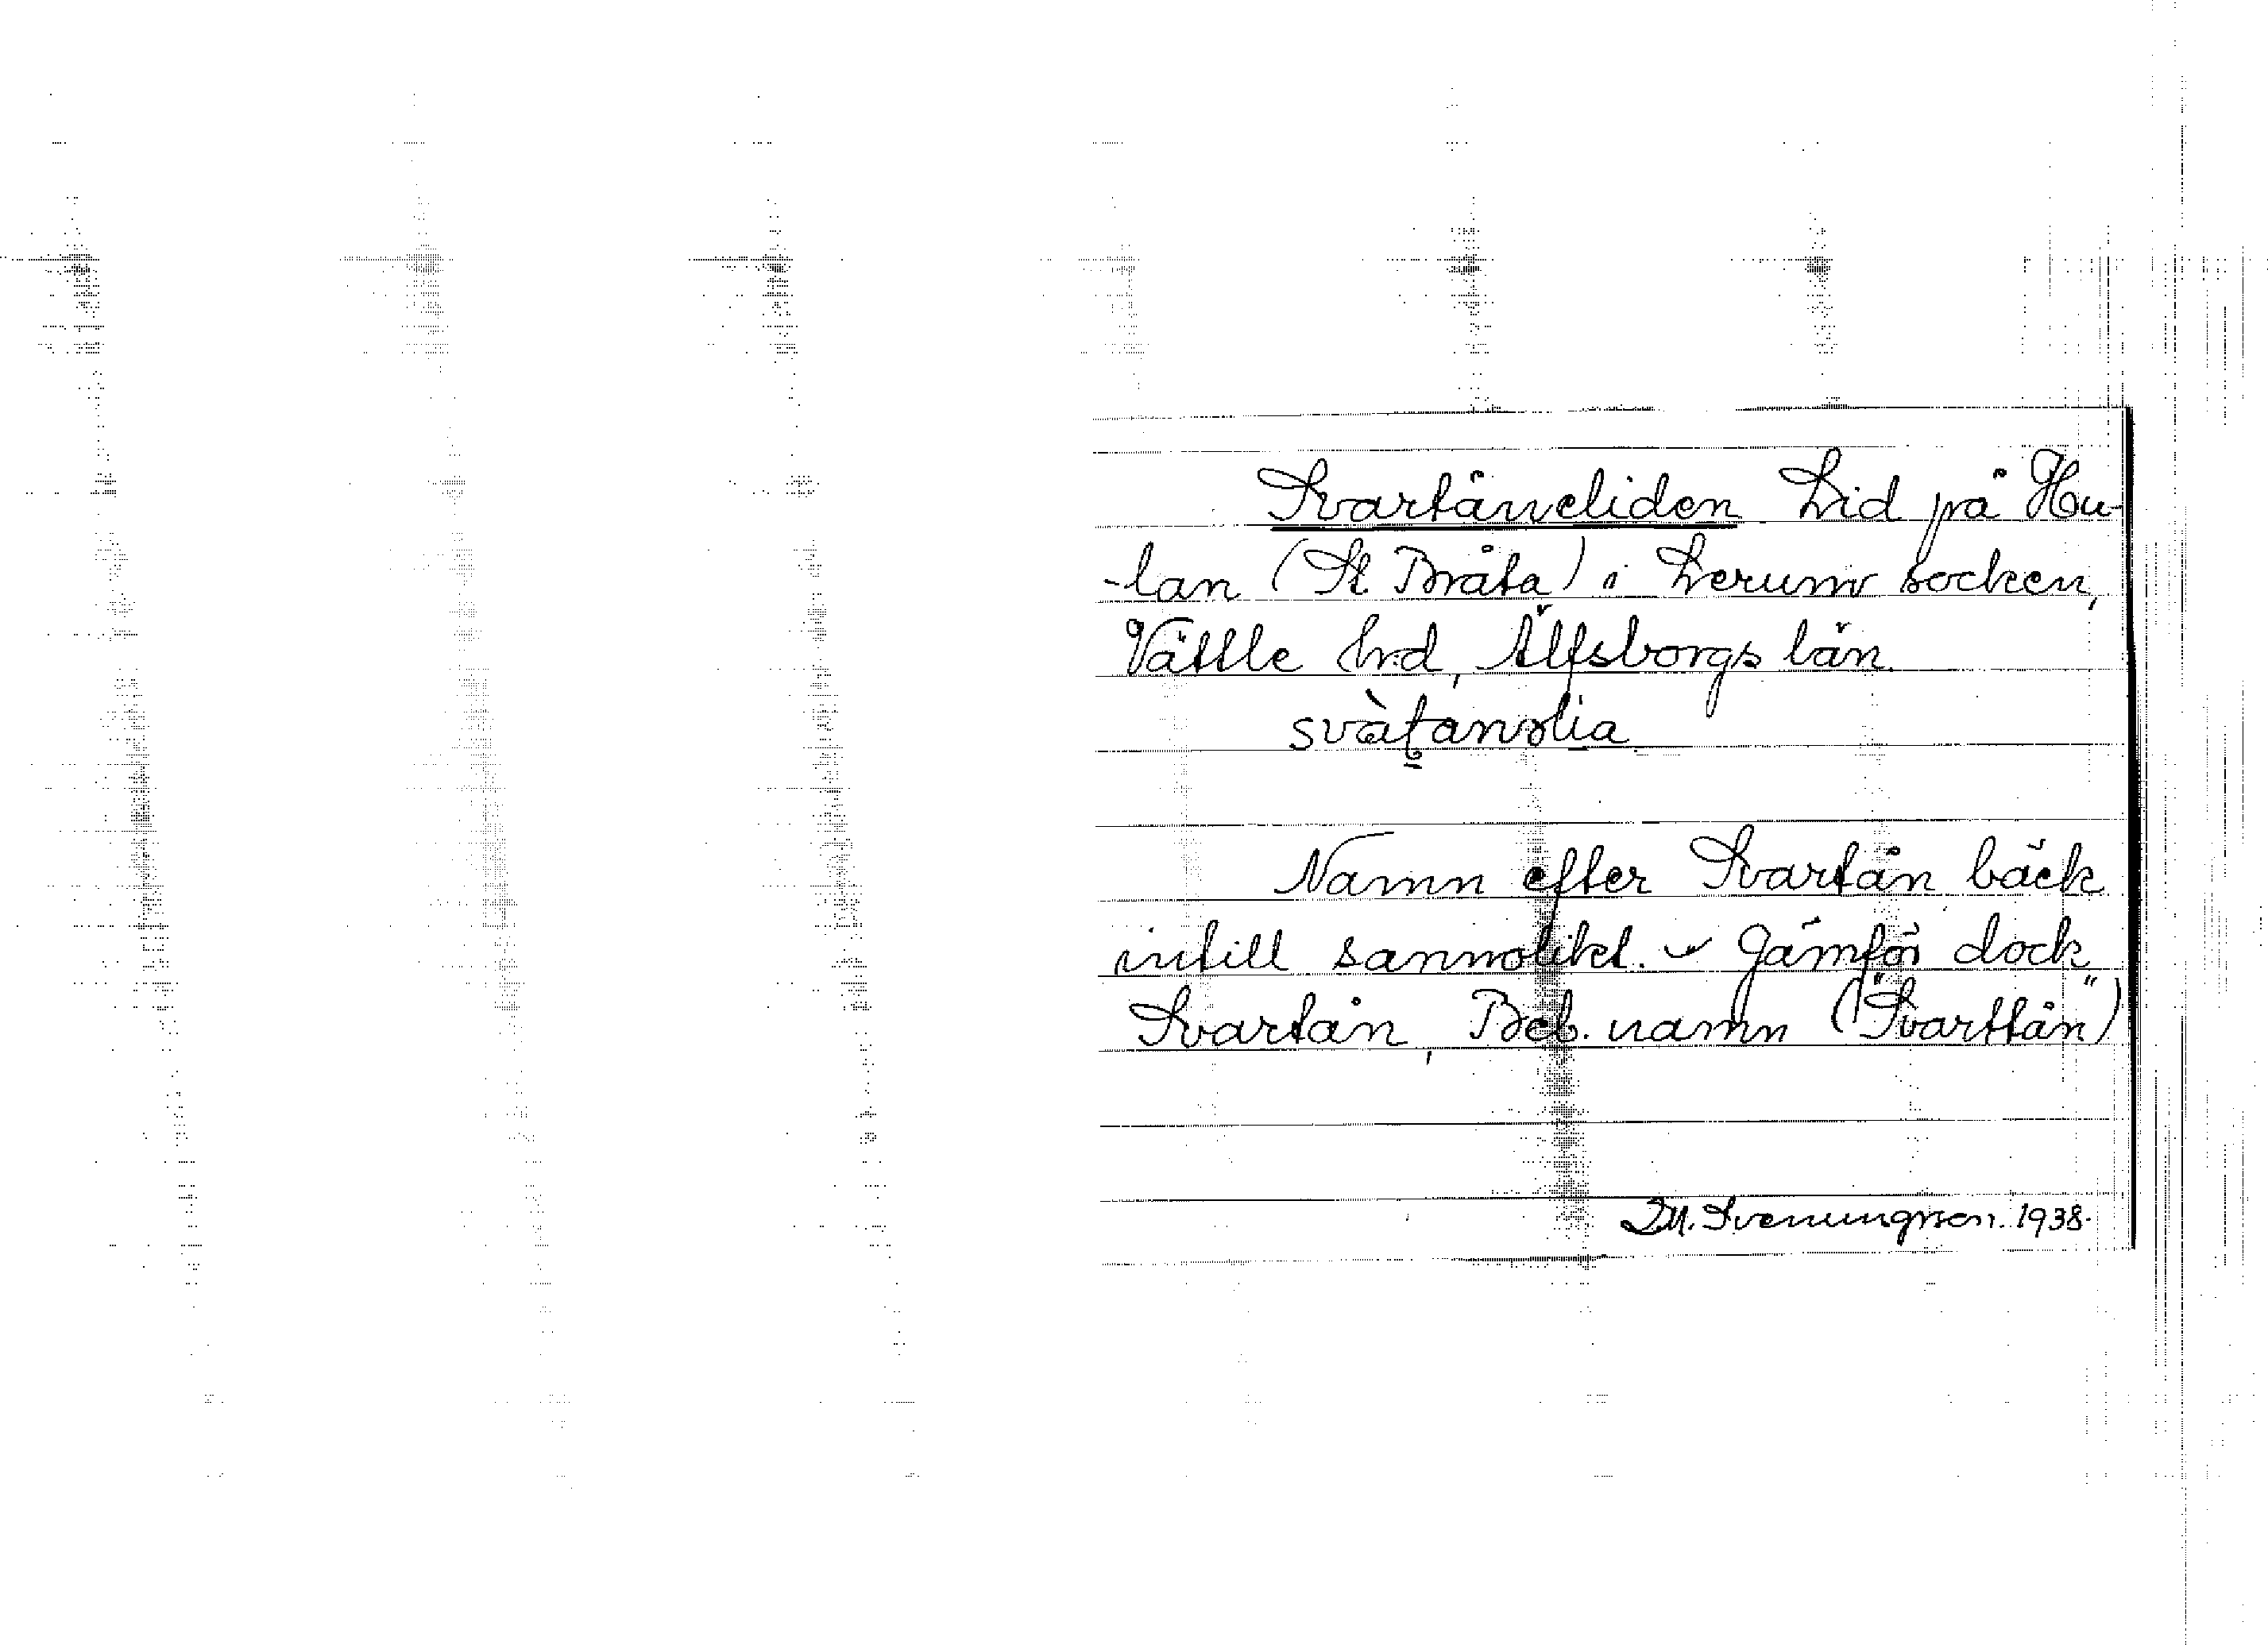 Svartåneliden Lid på Hu-
-lan (St. Bråta) i Lerums socken,
Vättle hrd, Älfsborgs län.
Namn efter Svartån bäck
intill sannolikt. – Jämför dock
Svartån, Beb. namn ("Svarttån")
M. Svenungsson. 1938.